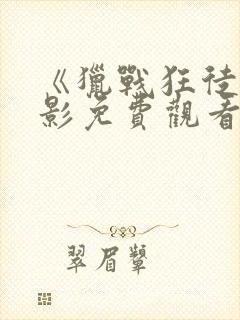 《獵戰狂徒
影免費觀看
翠眉顰